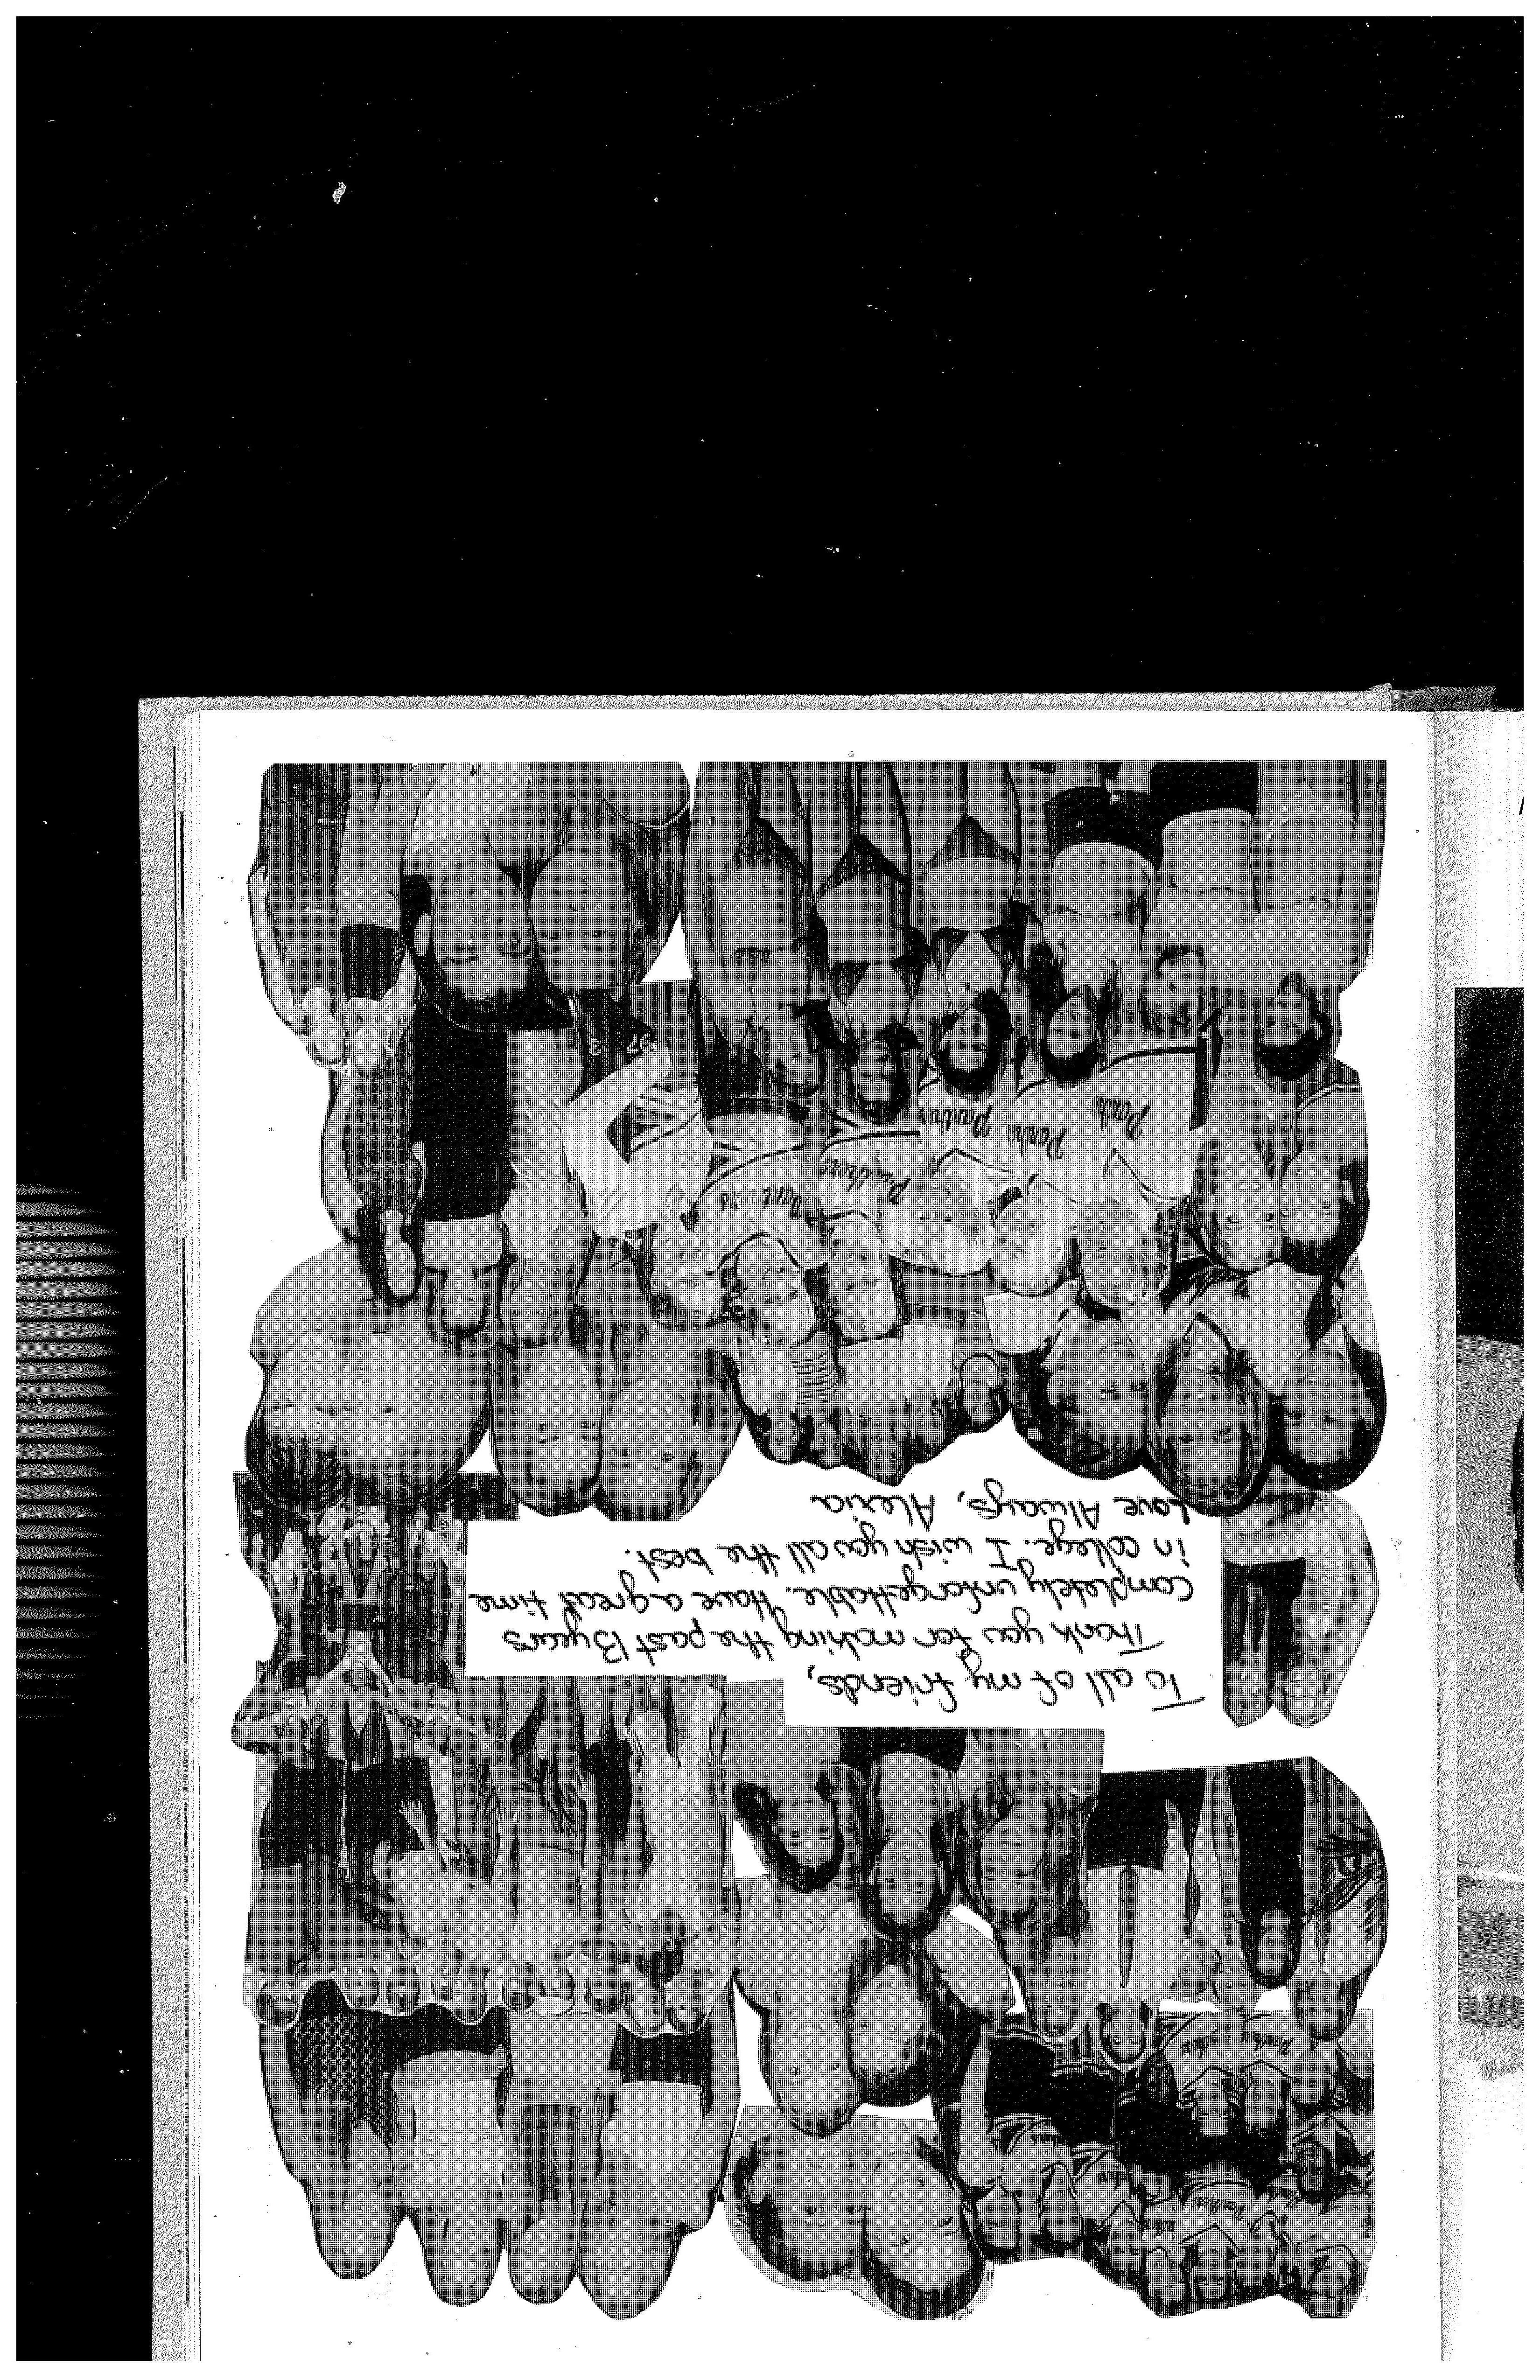 To all of my friends,
Thank you for making the past 13 years
completely unforgettable. Have a great time
in college. I wish you all the best.
Love Always, Alexia
Panthers
Panthers
97 3